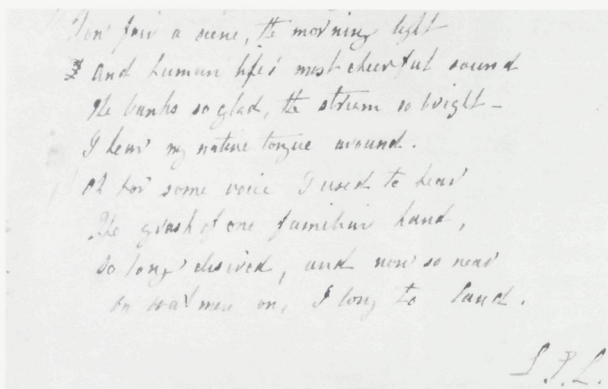 Too fair a scene, the morning light
And human life's most cheerful sound
The banks so glad, the stream so bright –
I hear my native tongue around.
Oh for some voice I used to hear
The grasp of one familiar hand,
So long desired, and now so near
on, I long to land.
S.P.L.